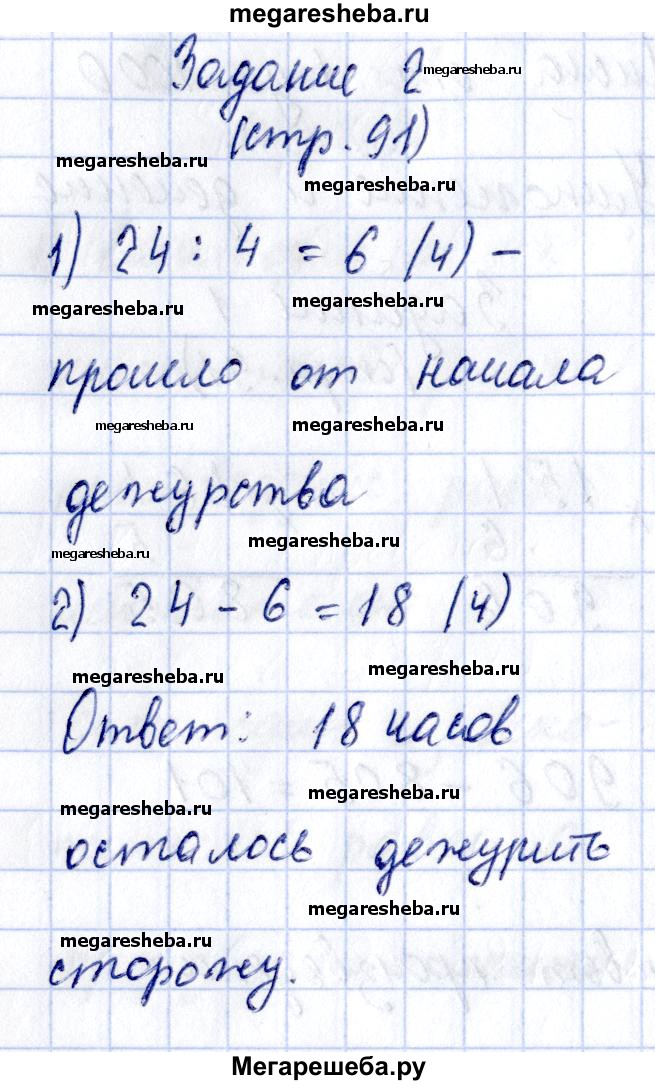 megaresheba.ru
Задание 2 megaresheba.ru
(стр. 91)
megaresheba.ru megaresheba.ru
1) 24 : 4 = 6 (ч) -
megaresheba.ru megaresheba.ru
прошло от начала
megaresheba.ru megaresheba.ru
дежурства
megaresheba.ru megaresheba.ru
2) 24 - 6 = 18 (ч)
megaresheba.ru megaresheba.ru
Ответ: 18 часов
megaresheba.ru megaresheba.ru
осталось дежурить
megaresheba.ru
megaresheba.ru
сторожу.
Мегарешеба.ру